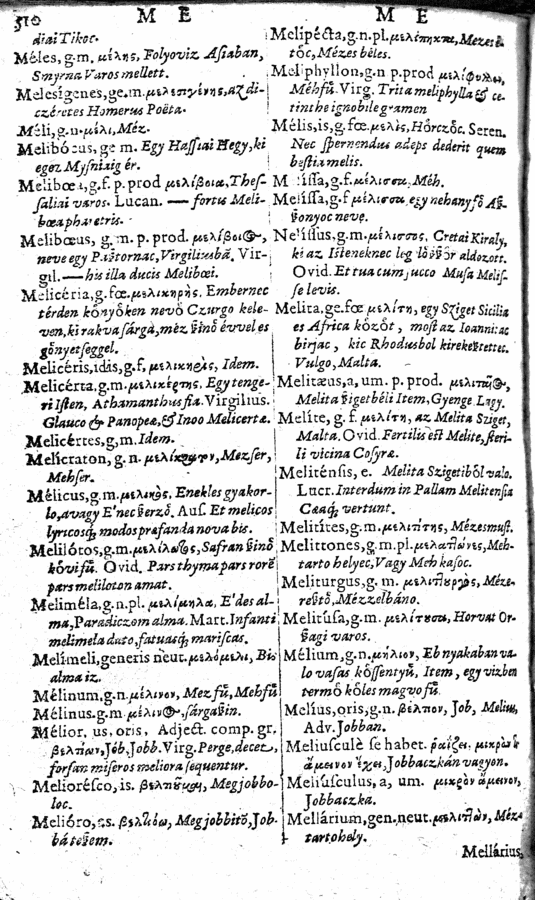 510 M E M E
diai Tikoc.
Méles, g.m. μέλης, Folyoviz Asiaban,
Smyrna Varos mellett.
Melesígenes, ge.m. μελεσιγένης, az di-
czéretes Homerus Poëta.
Méli, g.n. μέλι, Méz.
Melibócus, ge m. Egy Hassiai Hegy, ki
egez Mysniaig ér.
Melibœa, g.f. p. prod μελίβοια, Thes-
saliai varos. Lucan. — fortis Meli-
bœa pharetris.
Melibœus, g.m. p. prod. μελίβοιος,
neve egy Pastornac, Virgiliusbā. Vir-
gil. — his illa ducis Melibœi.
Melicéria, g.fœ. μελικηρὴς. Embernec
térden könyöken nevö Czurgo kele-
ven, ki rakva sárga, méz szinö évvel es
gönyetseggel.
Melicéris, idis, g.f. μελικηρὶς, Idem.
Melicérta, g.m. μελικέρτης. Egy tenge-
ri Isten, Athamanthus fia. Virgilius.
Glauco & Panopeæ, & Inoo Melicertæ.
Melicértes, g.m. Idem.
Melícraton, g.n. μελίκρατον, Mezser,
Mehser.
Mélicus, g.m. μελικὸς. Enekles gyakor-
lo, avagy E'nec szerzö. Aus. Et melicos
lyricosq; modos præfanda novabis.
Melilótos, g.m. μελίλωτος, Safran szinö
kövi fü. Ovid. Pars thyma pars rorē
pars meliloton amat.
Meliméla, g.n.pl. μελίμηλα, E'des al-
ma, Paradiczom alma. Mart. Infanti
melimela dato, fatuasq; mariscas.
Melímeli, generis neut. μελόμελι, Bis
alma iz.
Mélinum, g.n. μέλινον, Mez fü, Mehfü
Mélinus. g.m μέλινος, sárgaszin.
Mélior, us, oris, Adject. comp. gr.
βελτίων, Jób, Jobb. Virg. Perge, decet,
forsan miseros meliora sequentur.
Meliorésco, is. βελτιοῦμαι, Megjobbo-
loc.
Melióro, as. βελτιόω, Megjobbitö, Job-
bá teszem.
Melipécta, g.n.pl. μελίπηκτα, Mezes é-
töc, Mézes béles.
Meliphyllon, g.n p.prod μελίφυλλον,
Méhfü. Virg. Trita meliphylla & ce-
rinthe ignobile gramen
Mélis, is, g.fœ. μελὶς, Hörczöc. Seren.
Nec spernendus adeps dederit quem
bestia melis.
Melissa, g.f. μέλισσα, Méh.
Melissa, g.f μέλισσα, egy nehany fö As-
szonyoc neve.
Melissus, g.m. μέλισσος, Cretai Kiraly,
ki az Isteneknec leg löszször aldozott.
Ovid. Et tua cum jucco Musa Melis-
se levis.
Melita, ge.fœ μελίτη, egy Sziget Sicilia
es Africa közöt, most az Ioannitac
birjac, kic Rhodusbol kirekesztettec.
Vulgo, Malta.
Melitæus, a, um. p. prod. μελιταῖος,
Melita szigetbéli Item, Gyenge Lagy.
Melíte, g. f. μελίτη, az Melita Sziget,
Malta. Ovid. Fertilis est Melite, steri-
li vicina Cosyræ.
Meliténsis, e. Melita Szigetiböl valo.
Lucr. Interdum in Pallam Melitensia
Cæaq; vertunt.
Melitítes, g.m. μελιτίτης, Mézes must.
Melittones, g.m.pl. μελιττῶνες, Meh-
tarto helyec, Vagy Meh kasoc.
Meliturgus, g. m. μελιτουργὸς, Méze-
resztö, Mézzelbáno.
Melitúsa, g.m. μελίτουσα, Horvat Or-
szagi varos.
Mélium, g.n. μήλιον, Eb nyakaban va-
lo vasas kössentyü, Item, egy vizben
termö köles magvo fü.
Melíus, oris, g.n. βέλτιον, Job, Melius,
Adv. Jobban.
Meliusculè se habet. ῥαΐζει, μικρὸν
ἄμεινον ἔχει, Jobbaczkan vagyon.
Meliúsculus, a, um. μικρὸν ἄμεινον,
Jobbaczka.
Mellárium, gen.neut. μελιττὼν, Méz-
tarto hely.
Mellárius,